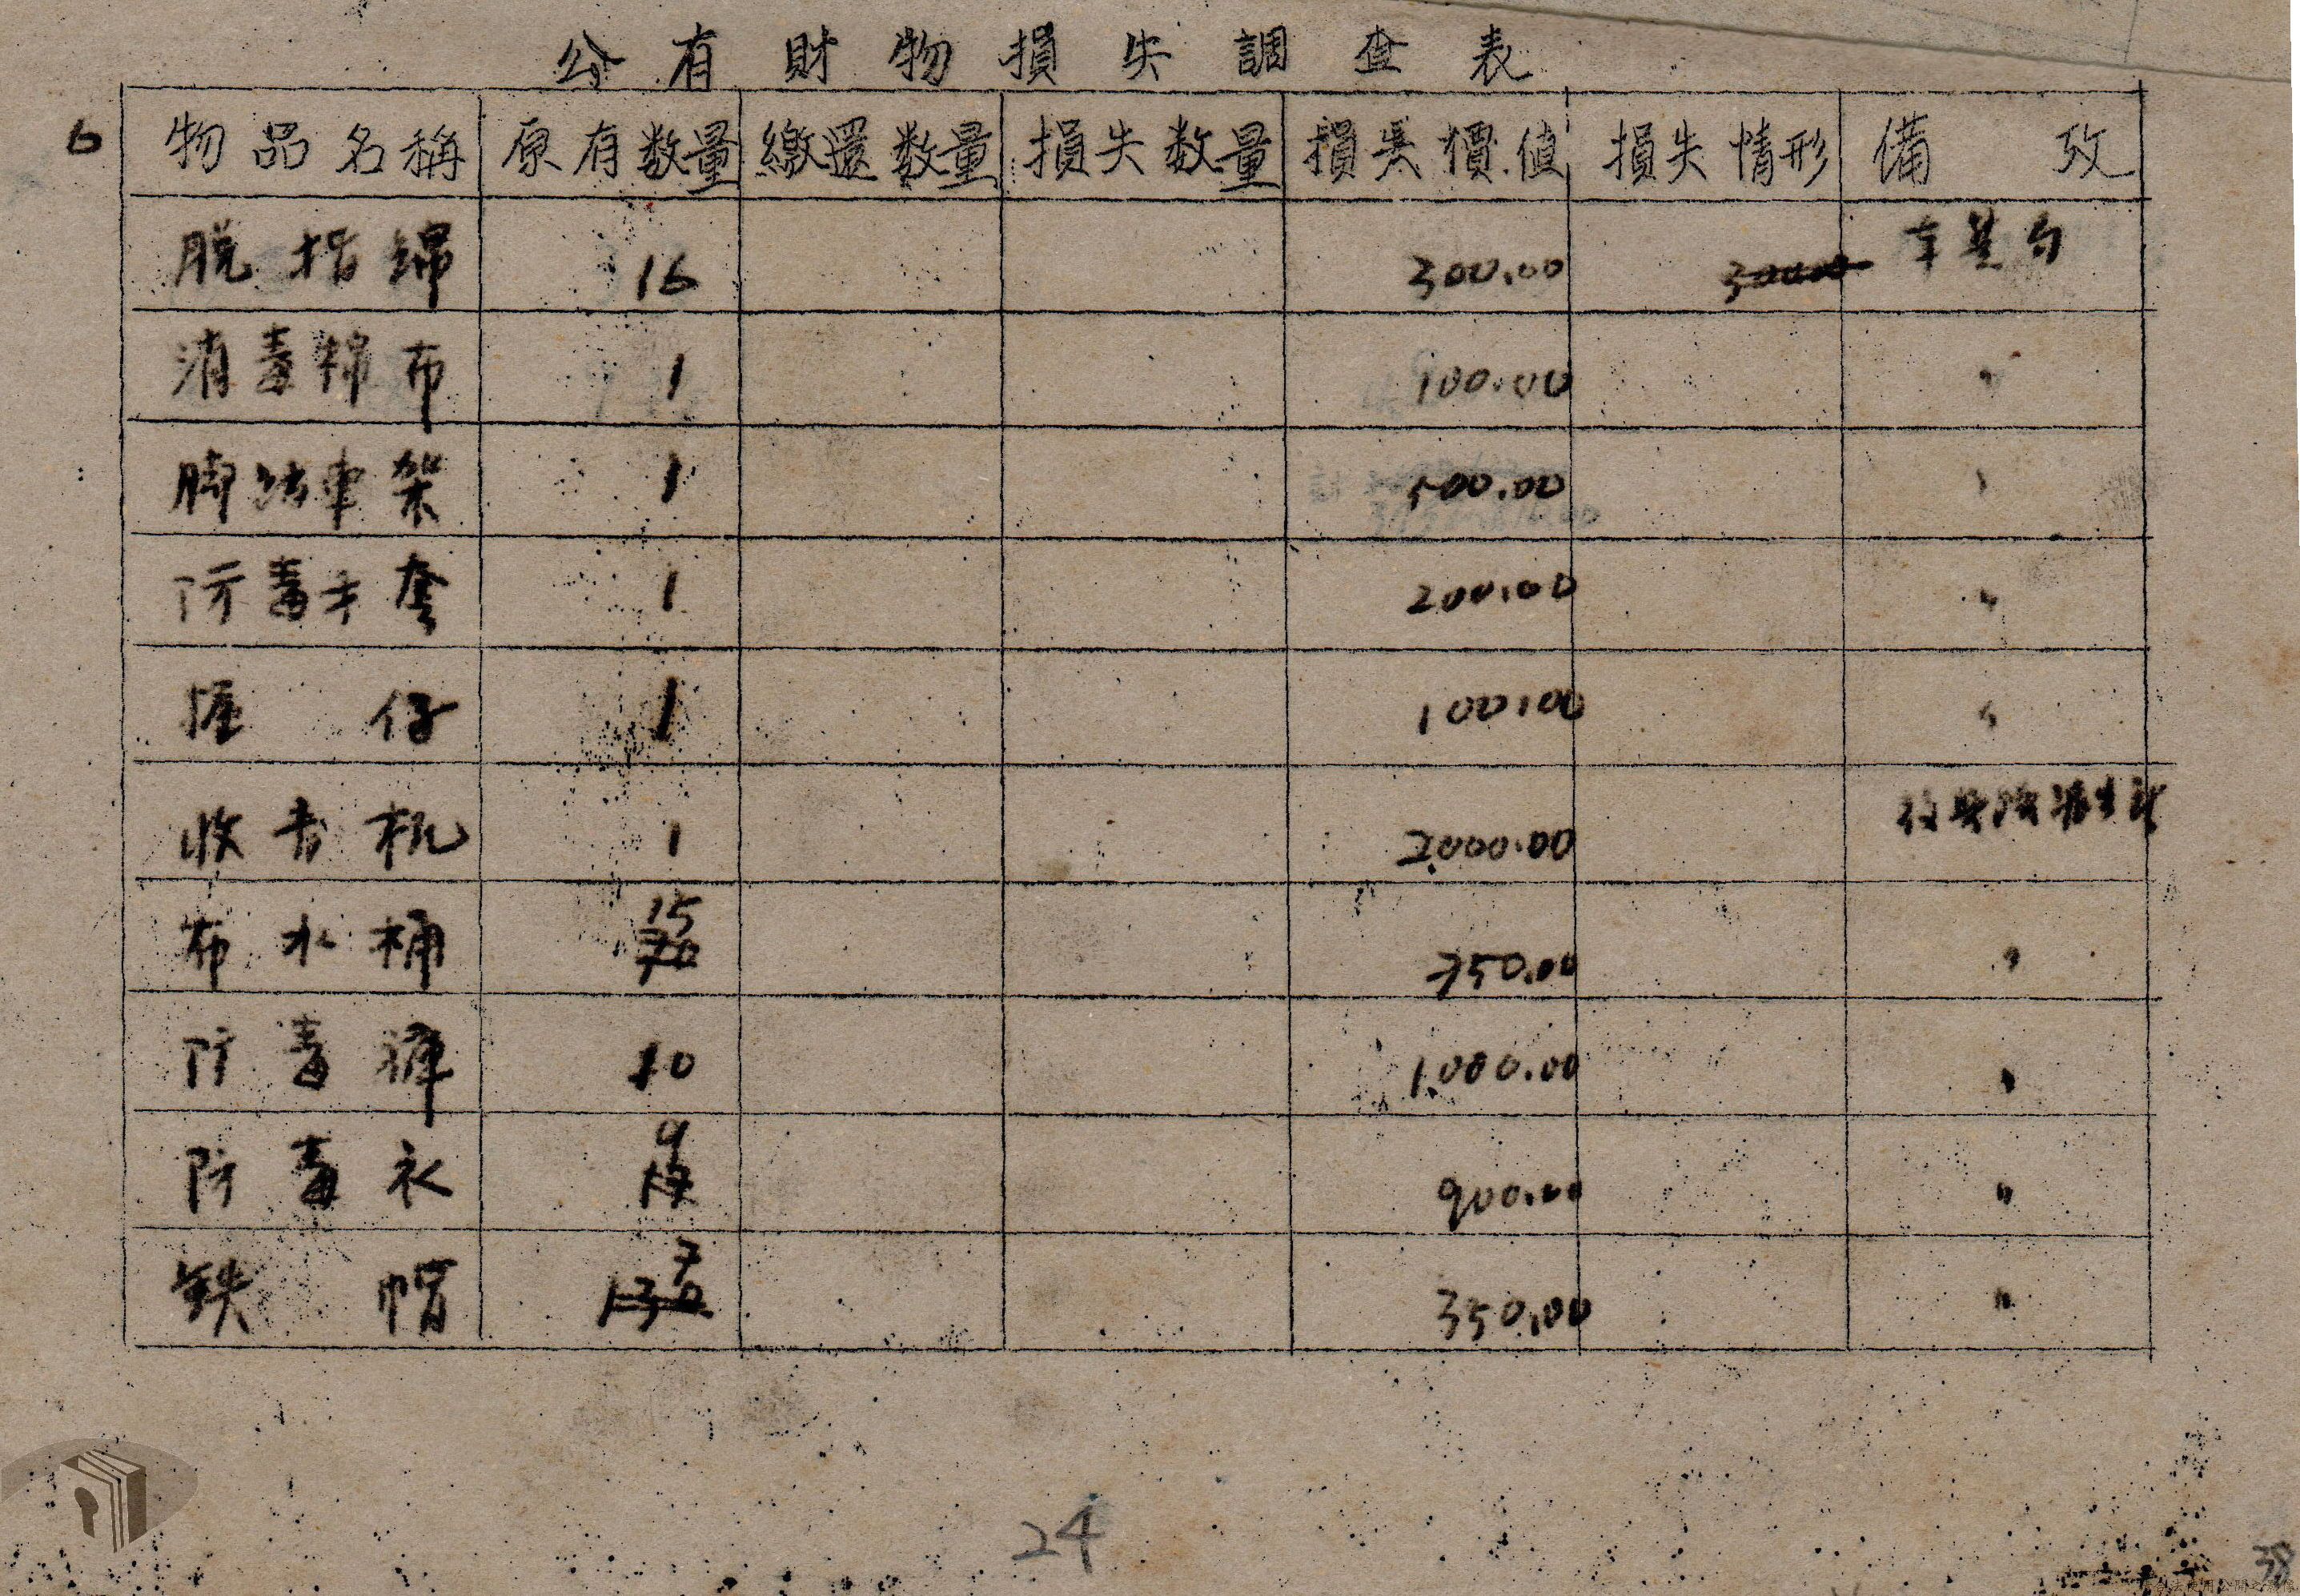 公有財物損失調查表
6
物品名稱 原有数量 繳還数量 損失数量 損失價值 損失情形 備攷
脫指綿 16 300.00 300.00
消毒棉布 1 100.00 〃
脚踏車架 1 500.00 〃
防毒手套 1 200.00 〃
仔 1 100.00 〃
收音机 1 2000.00
布水桶 15 750.00 〃
防毒褲 10 1.000.00 〃
防毒衣 9 900.00 〃
鉄帽 7 130 350.00 〃
24
38